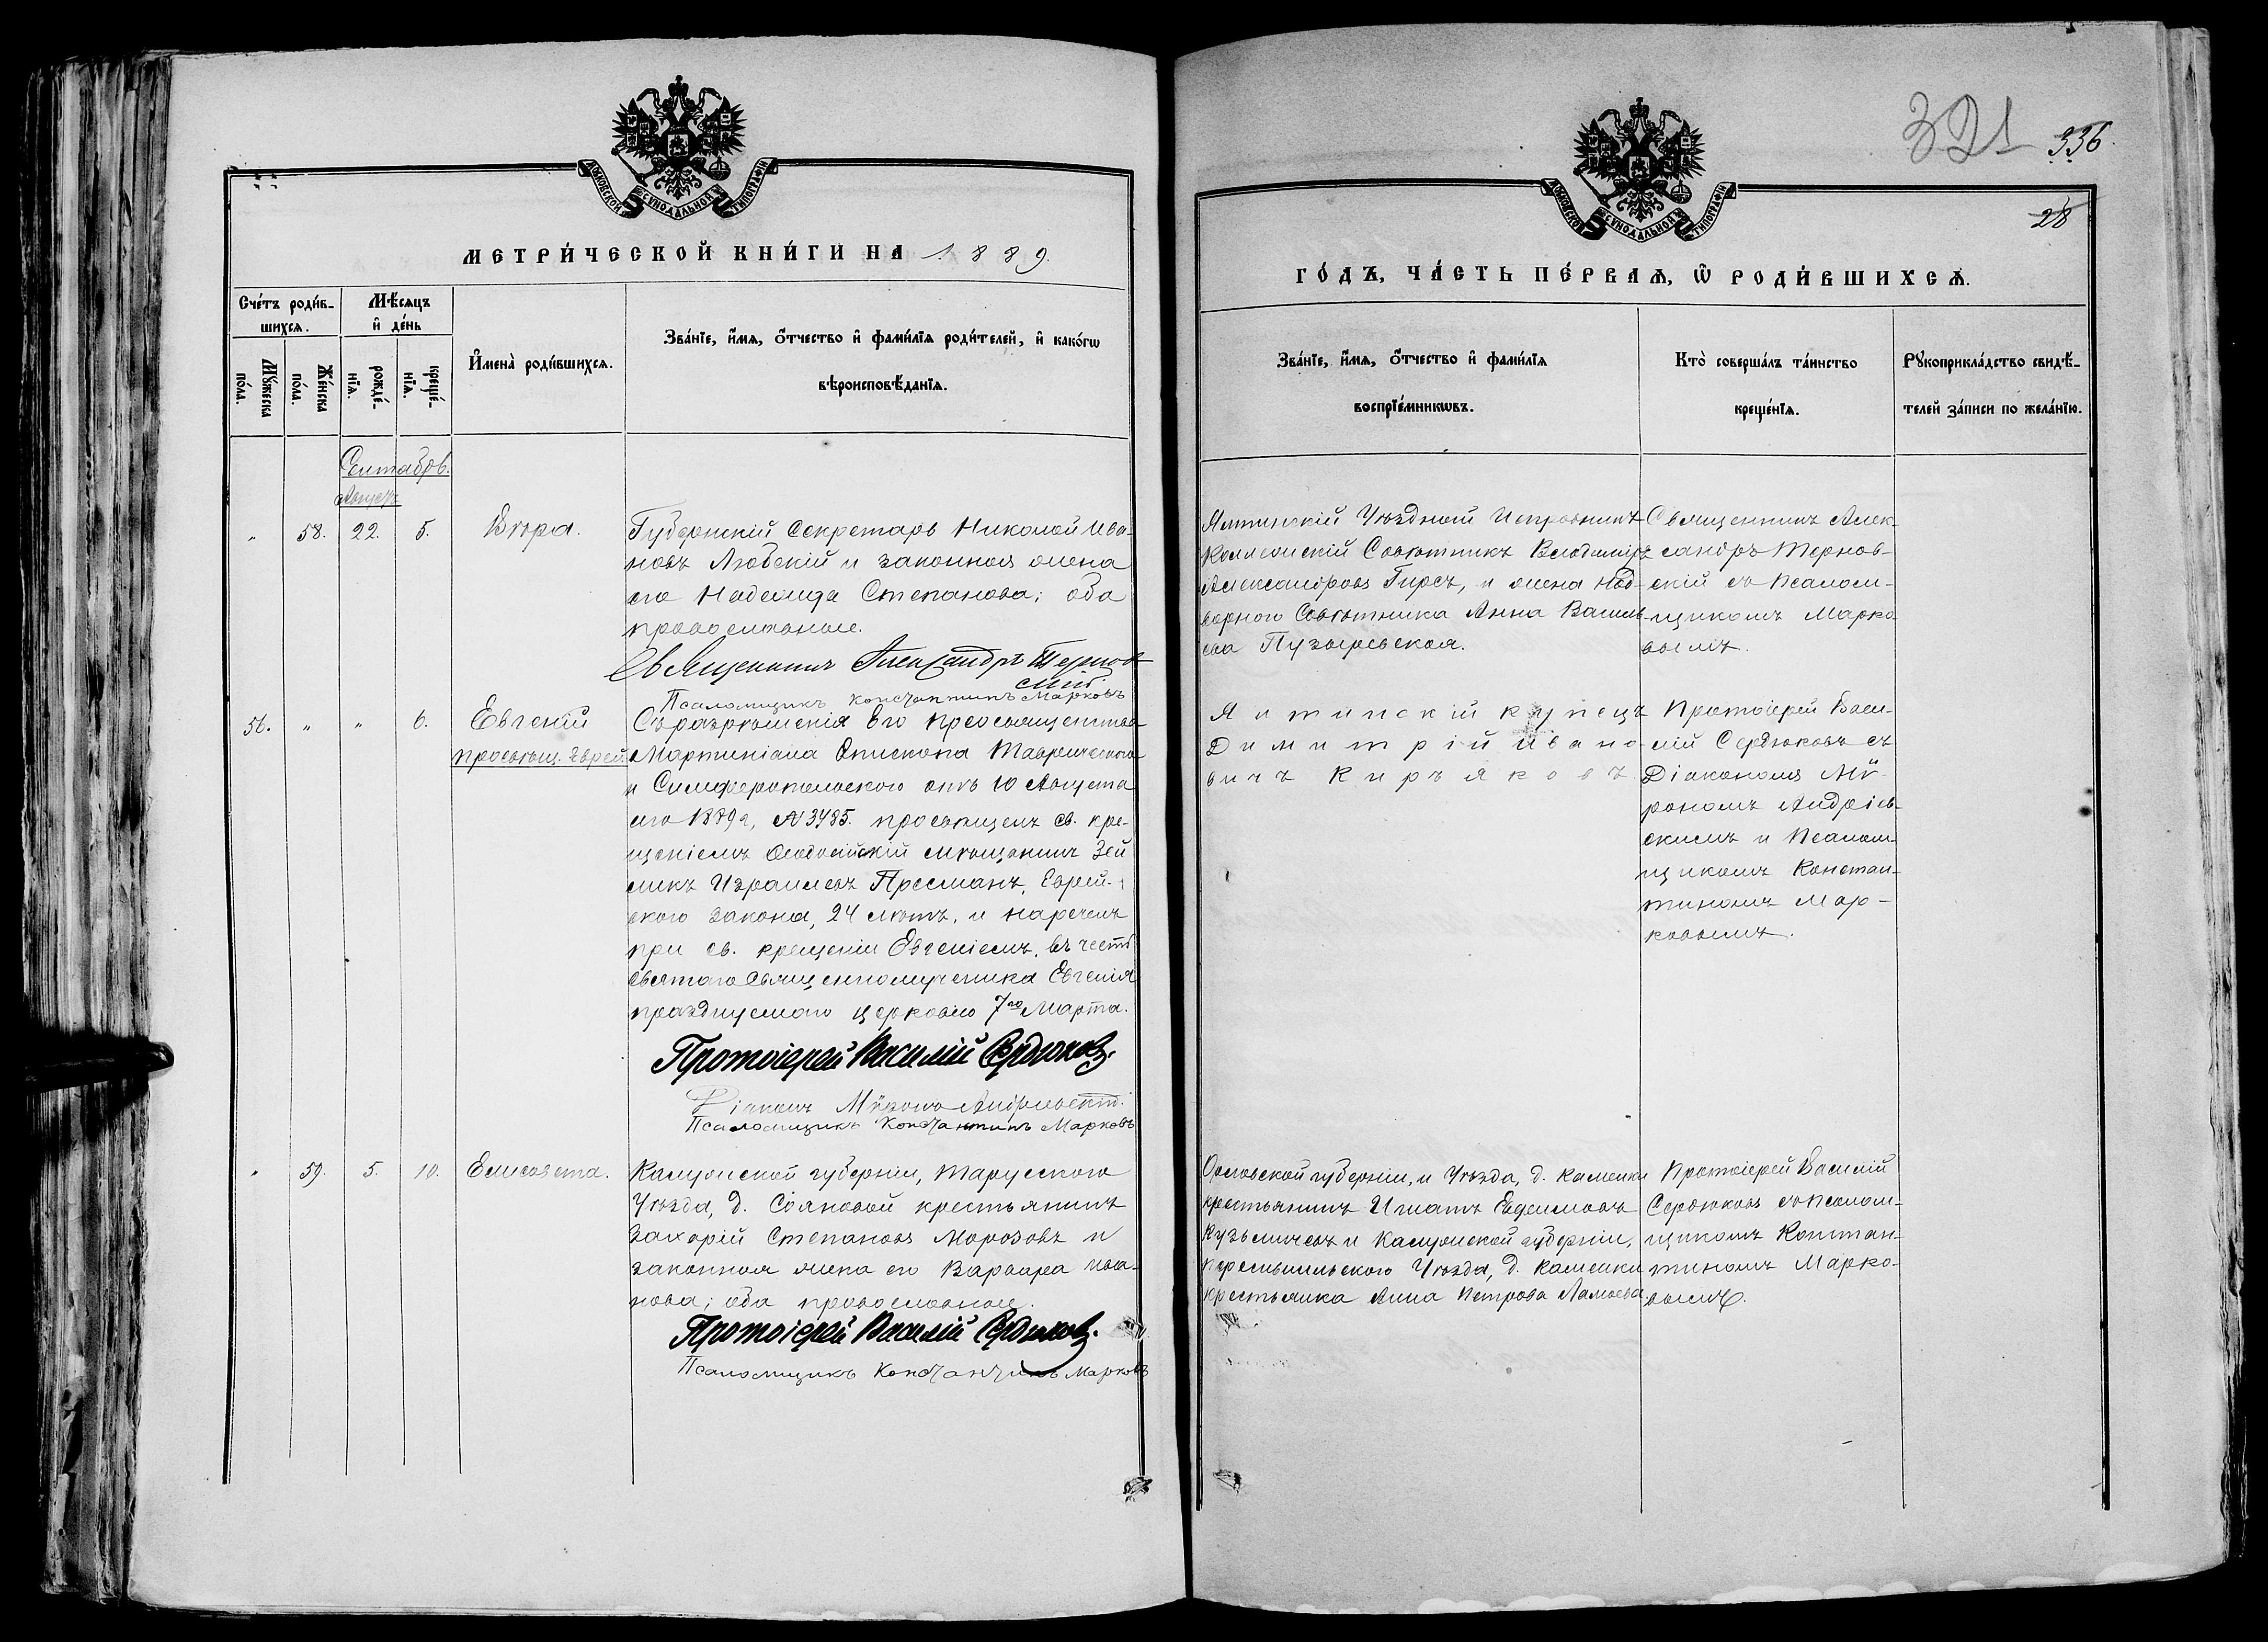 МОСКОВСКОЙ СѴНОДАЛЬНОЙ ТИПОГРАФІИ
МЕТРИ́ЧЕСКОЙ КНИ́ГИ НА 1889.
Сче́тъ роди́в-
шихсѧ.
Мѣ́сѧцъ
и҆ де́нь
Мꙋ́жеска
по́ла.
Же́нска
по́ла.
рожде́-
нїѧ.
креще́-
нїѧ.
И҆мена̀ роди́вшихсѧ.
Зва́нїе, и҆́мѧ, ѻ҆́тчество и҆ фами́лїѧ роди́телей, и҆ како́гѡ
вѣроисповѣ́данїѧ.
Сентябрь.
Августъ
" 58. 22. 5. Вѣра.
Губернскій Секретарь Николай Ива-
новъ Любскій и законная жена
его Надежда Степанова; оба
православные.
Священникъ Александръ Тернов
скій.
Псаломщикъ Константинъ Марковъ
56. " " 6. Евгеній
просвѣщ. Еврей
Съ разрѣшенія Его Преосвященства
Мартиніана Епископа Таврическаго
и Симферопольскаго отъ 10 Августа
сего 1889 г, № 3485. просвѣщенъ св. кре-
щеніемъ Ѳеодосійскій мѣщанинъ Зей
ликъ Израилевъ Пресманъ, Еврей-
скаго закона, 24 лѣтъ, и нареченъ
при св. крещеніи Евгеніемъ, въ честь
Святаго Священномученика Евгенія
празднуемаго церковію 7го Марта.
Протоіерей Василій Сердюковъ.
Діаконъ Мѵронъ Андріевскій.
Псаломщикъ Константинъ Марковъ
" 59. 5. 10. Елисавета.
Калужской губерніи, Тарусскаго
Уѣзда, д. Сояковой крестьянинъ
Захарій Степановъ Морозовъ и
законная жена его Варвара Ива-
нова; оба православные.
Протоіерей Василій Сердюковъ.
Псаломщикъ Константинъ Марковъ
321 336.
28
МОСКОВСКОЙ СѴНОДАЛЬНОЙ ТИПОГРАФІИ
ГО́ДЪ, ЧА́СТЬ ПЕ́РВАѦ, Ѡ҆ РОДИ́ВШИХСѦ.
Зва́нїе, и҆́мѧ, ѻ҆́тчество и҆ фами́лїѧ
воспрїе́мникѡвъ.
Кто̀ соверша́лъ та́инство
креще́нїѧ.
Рꙋкоприкла́дство свидѣ́-
телей за́писи по жела́нїю.
Ялтинскій Уѣздный Исправникъ
Коллежскій Совѣтникъ Владиміръ
Александровъ Гирсъ, и жена Над-
ворнаго Совѣтника Анна Василь-
ева Пузыревская.
Священникъ Алек-
сандръ Тернов-
скій съ Псалом-
щикомъ Марко
вымъ.
Ялтинскій купецъ
Димитрій Ивано-
вичъ Кирьяковъ
Протоіерей Васи-
лій Сердюковъ съ
Діакономъ Мѵ-
рономъ Андріев-
скимъ и Псалом-
щикомъ Констан-
тиномъ Мар-
ковымъ.
Орловской губерніи, и Уѣзда, д. Каменки
крестьянинъ Игнатъ Евдокимовъ
Кузьмичевъ и Калужской губерніи,
Перемышльскаго Уѣзда, д. Каменки
крестьянка Анна Петрова
Протоіерей Василій
Сердюковъ съ Псалом-
щикомъ Констан-
тиномъ Марко-
вымъ.